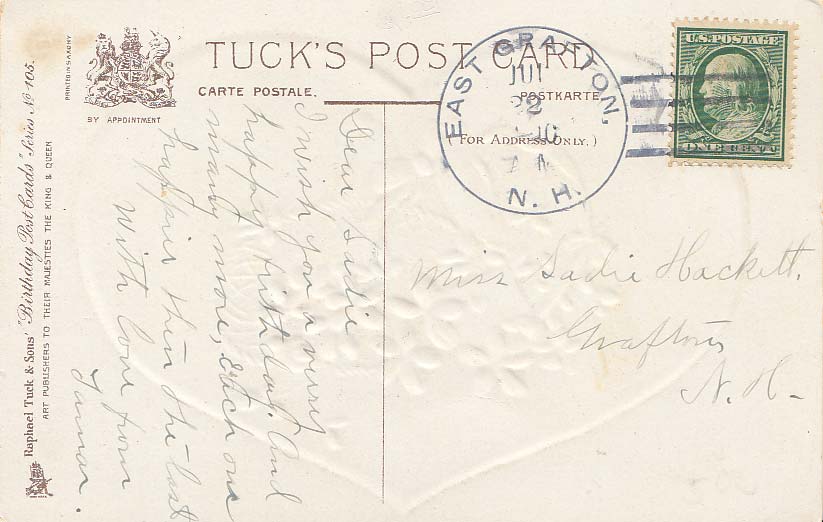 TUCK'S POST CARD
CARTE POSTALE.
POSTKARTE
( FOR ADDRESS ONLY. )
BY APPOINTMENT
PRINTED IN SAXONY
Raphael Tuck & Sons' "Birthday Post Cards" Series No 105.
ART PUBLISHERS TO THEIR MAJESTIES THE KING & QUEEN
EAST GRAFTON,
22
N. H.
U.S. POSTAGE
ONE CENT
Dear Sadie
I wish you a very
happy birthday. And
many more, each one
happier then the last
With love from
Miss Sadie Hackett.
Grafton
N. H-